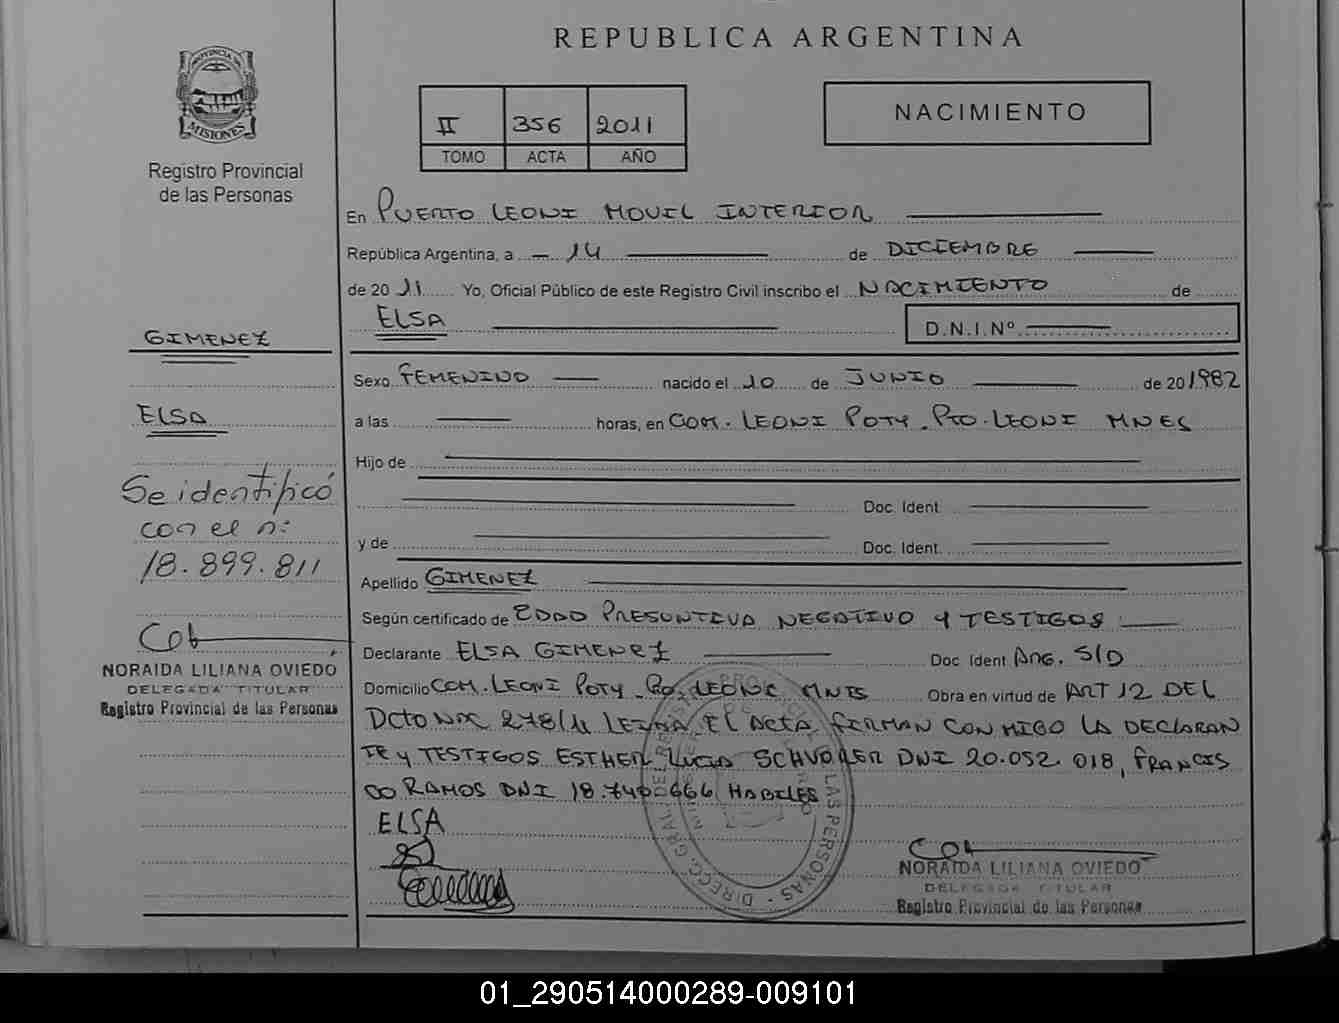 REPUBLICA ARGENTINA
PROVINCIA DE
MISIONES
Registro Provincial
de las Personas
II 356 2011
TOMO ACTA AÑO
NACIMIENTO
En PUERTO LEONI MOVIL INTERIOR
República Argentina, a 14 de DICIEMBRE
de 20 11 Yo, Oficial Público de este Registro Civil inscribo el NACIMIENTO de
ELSA D.N.I.Nº
GIMENEZ
Sexo FEMENINO nacido el 10 de JUNIO de 20 1982
ELSA
a las horas, en COM. LEONI POTY. PTO. LEONI MNES
Hijo de
Doc. Ident.
y de Doc. Ident.
Se identificó
con el nº
18.899.811
Apellido GIMENEZ
Según certificado de EDAD PRESUNTIVA NEGATIVO Y TESTIGOS
Declarante ELSA GIMENEZ Doc Ident ARG. S/D
Domicilio COM. LEONI POTY. PTO. LEONI MNES Obra en virtud de ART 12 DEL
DCTO 278/11 LEIDA EL ACTA FIRMAN CONMIGO LA DECLARAN
TE Y TESTIGOS ESTHER LUCIA DNI 20.052.018, FRANCIS
CO RAMOS DNI 18.740.666 HABILES
ELSA
NORAIDA LILIANA OVIEDO
DELEGADA TITULAR
Registro Provincial de las Personas
NORAIDA LILIANA OVIEDO
DELEGADA TITULAR
Registro Provincial de las Personas
LAS PERSONAS - DIRECC. GRAL.
01_290514000289-009101